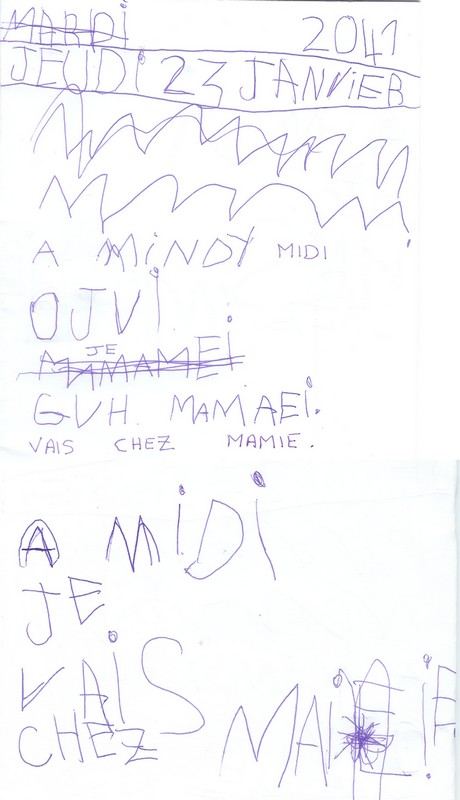 MARDi
2041
JEUDi 23 JANViEB
A MiNDY MIDI
OJVi
JE
MAMAMEi
GVH. MAMAEi.
VAIS CHEZ MAMIE.
A MiDi
JE
VAiS
CHEZ